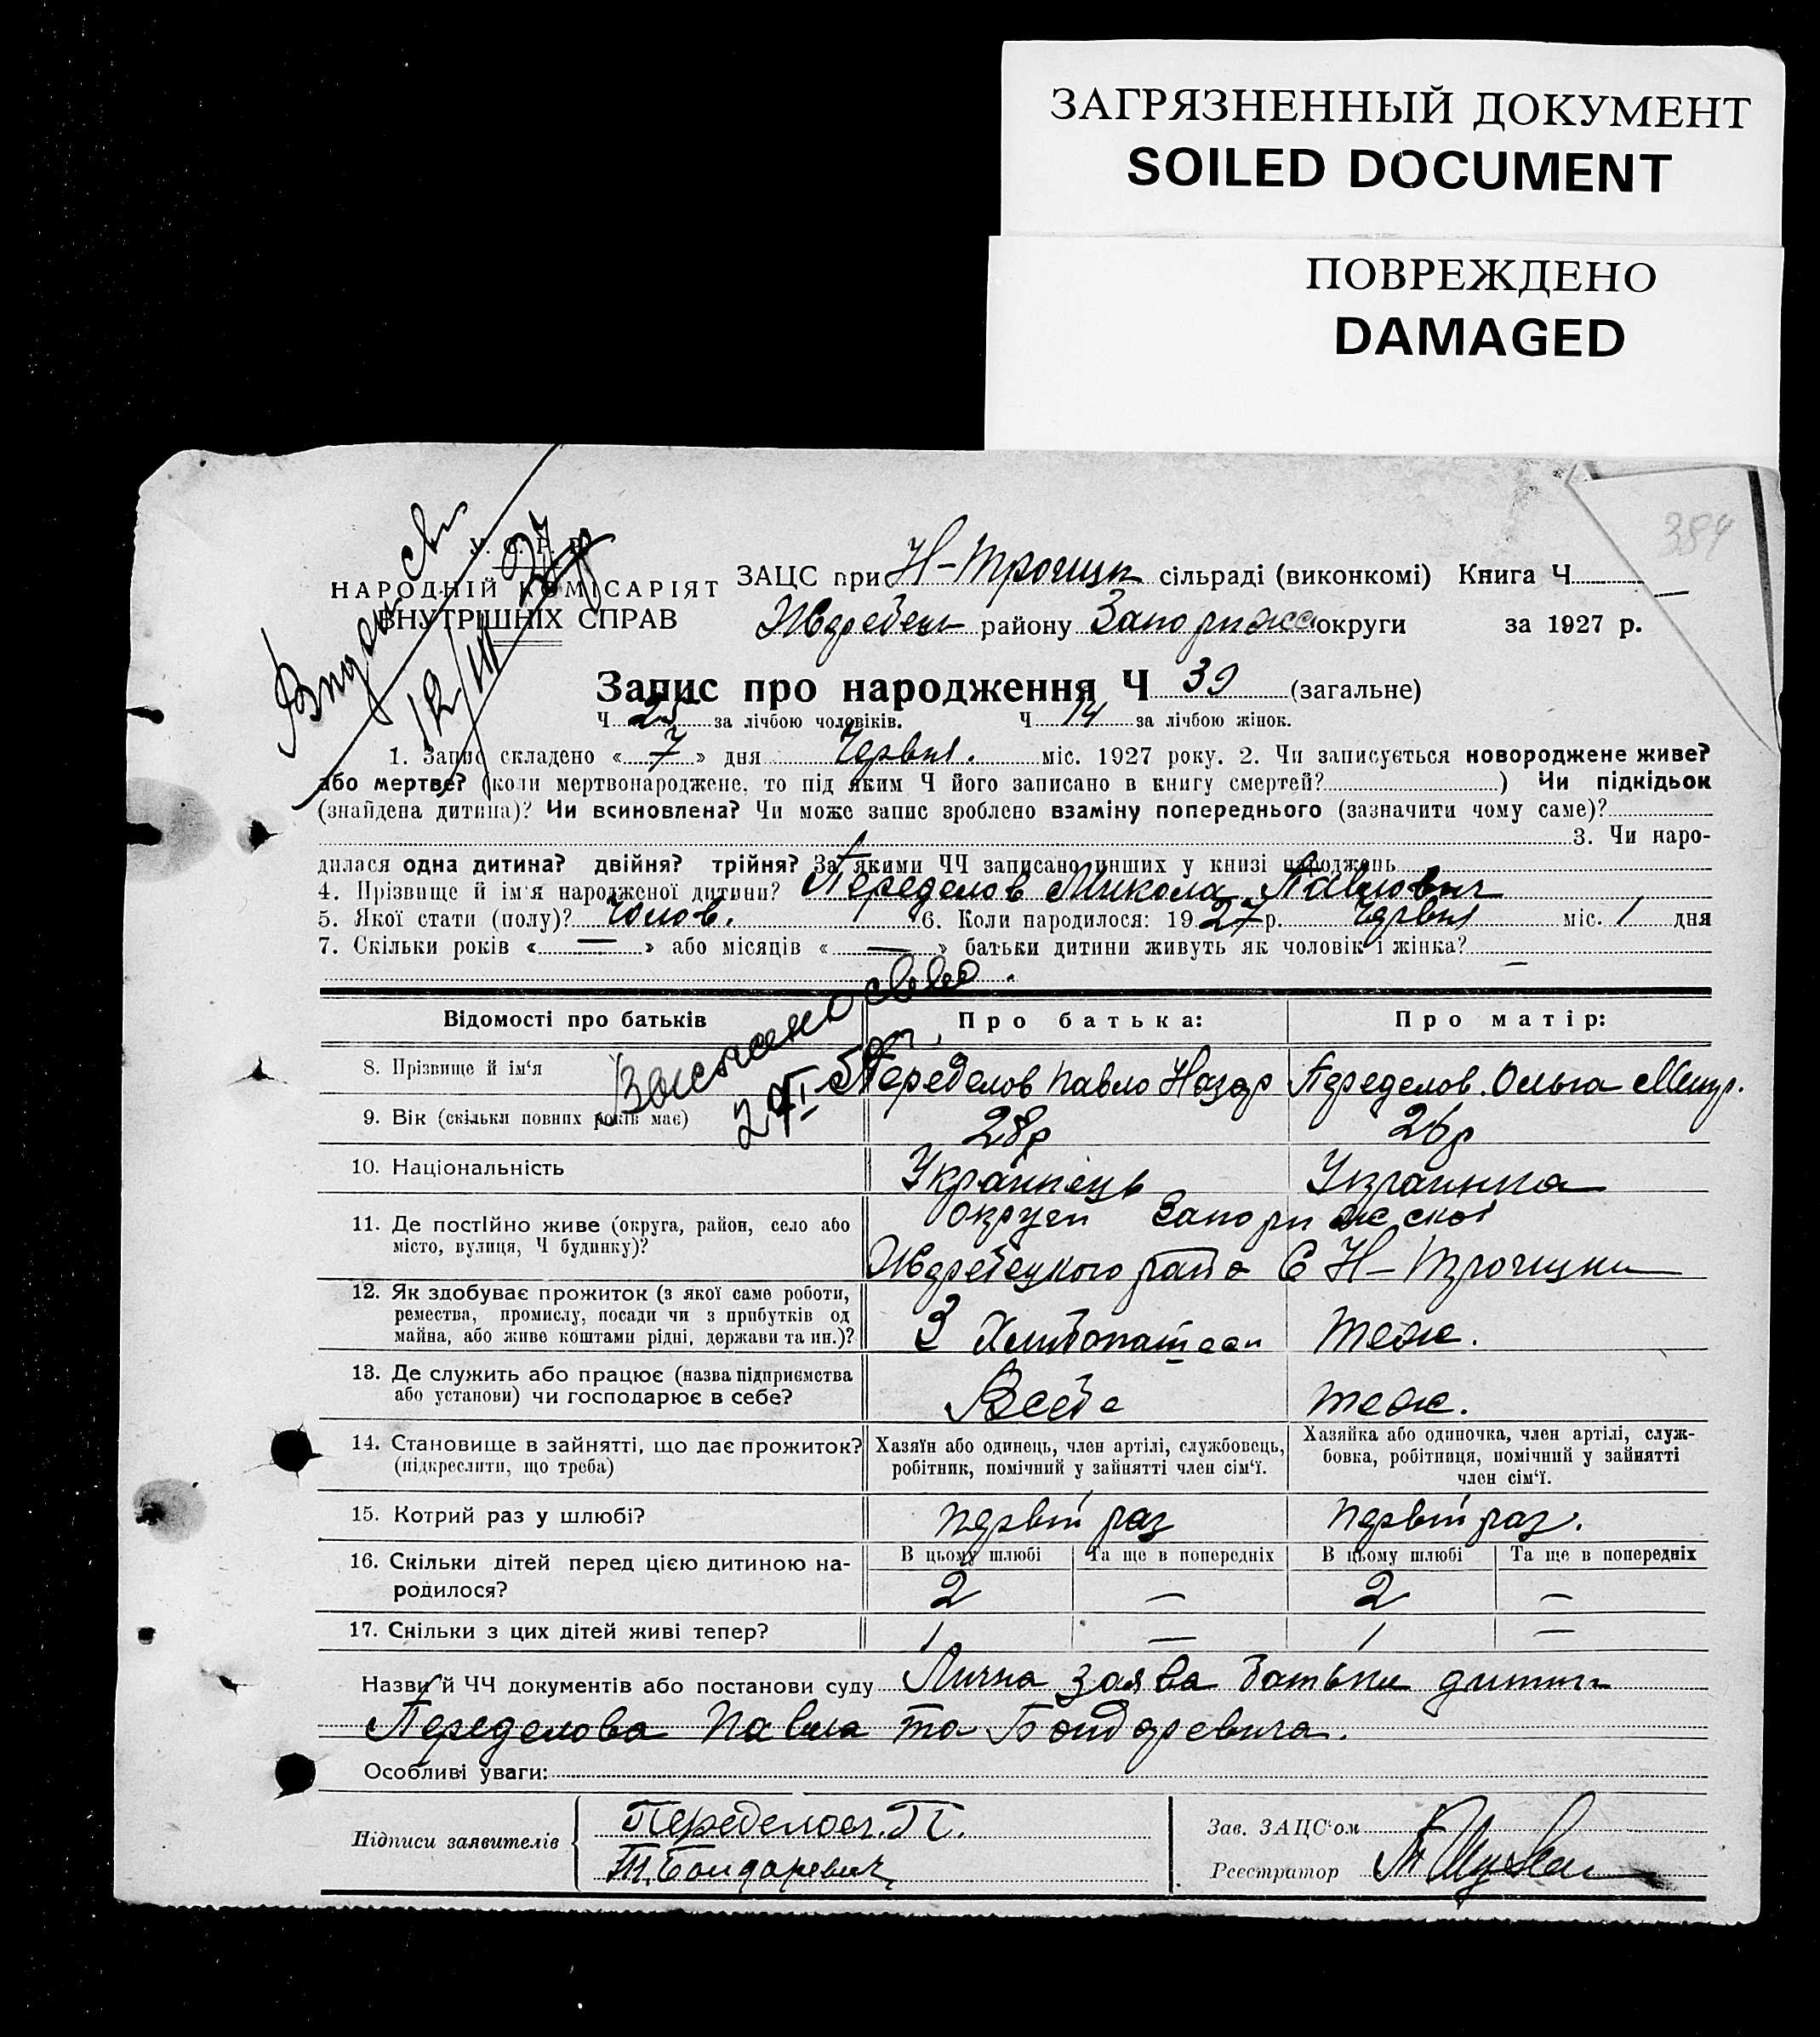 ЗАГРЯЗНЕННЫЙ ДОКУМЕНТ
SOILED DOCUMENT
ПОВРЕЖДЕНО
DAMAGED
384
У. С. Р. Р.
НАРОДНІЙ КОМІСАРІЯТ
ВНУТРІШНІХ СПРАВ
12/III 27
ЗАЦС при Н-Троицьк сільраді (виконкомі) Книга Ч
Жеребец району Запорижс округи за 1927 р.
Запис про народження Ч 39 (загальне)
Ч 25 за лічбою чоловіків. Ч 14 за лічбою жінок.
1. Запис складено « 7 » дня Червня. міс. 1927 року. 2. Чи записується новороджене живе?
або мертве? (коли мертвонароджене, то під яким Ч його записано в книгу смертей? ) Чи підкідьок
(знайдена дитина)? Чи всиновлена? Чи може запис зроблено взаміну попереднього (зазначити чому саме)?
3. Чи наро-
дилася одна дитина? двійня? трійня? За якими ЧЧ записано инших у книзі народжень
4. Прізвище й ім'я народженої дитини? Переделов Микола Павлович
5. Якої стати (полу)? Чолов. 6. Коли народилося: 1927 р. Червня міс. 1 дня
7. Скільки років « — » або місяців « — » батьки дитини живуть як чоловік і жінка? —
Відомості про батьків Про батька: Про матір:
8. Прізвище й ім‘я Переделов Павло Назар Переделов. Ольга
9. Вік (скільки повних років має) 28р 26р
10. Національність Українець Украинка
11. Де постійно живе (округа, район, село або округи Запорижской
місто, вулиця, Ч будинку)? Жеребецкого С Н-Троицки
12. Як здобуває прожиток (з якої саме роботи,
ремества, промислу, посади чи з прибутків од
майна, або живе коштами рідні, держави та ин.)? З теж.
13. Де служить або працює (назва підприємства
або установи) чи господарює в себе? Всебе теж.
14. Становище в зайнятті, що дає прожиток? Хазяїн або одинець, член артілі, службовець, Хазяйка або одиночка, член артілі, служ-
(підкреслити, що треба) робітник, помічний у зайнятті член сім‘ї. бовка, робітниця, помічний у зайнятті
член сім‘ї.
15. Котрий раз у шлюбі? первий раз первий раз.
16. Скільки дітей перед цією дитиною на- В цьому шлюбі Та ще в попередніх В цьому шлюбі Та ще в попередніх
родилося? 2 — 2 —
17. Скільки з цих дітей живі тепер? 1 — 1 —
Назви й ЧЧ документів або постанови суду Лична заява батьки дитини
Переделова Павла та Бондаревича.
Особливі уваги:
Підписи заявителів Переделов. П.
Т. Бондаревич
Зав. ЗАЦС‘ом
Реєстратор